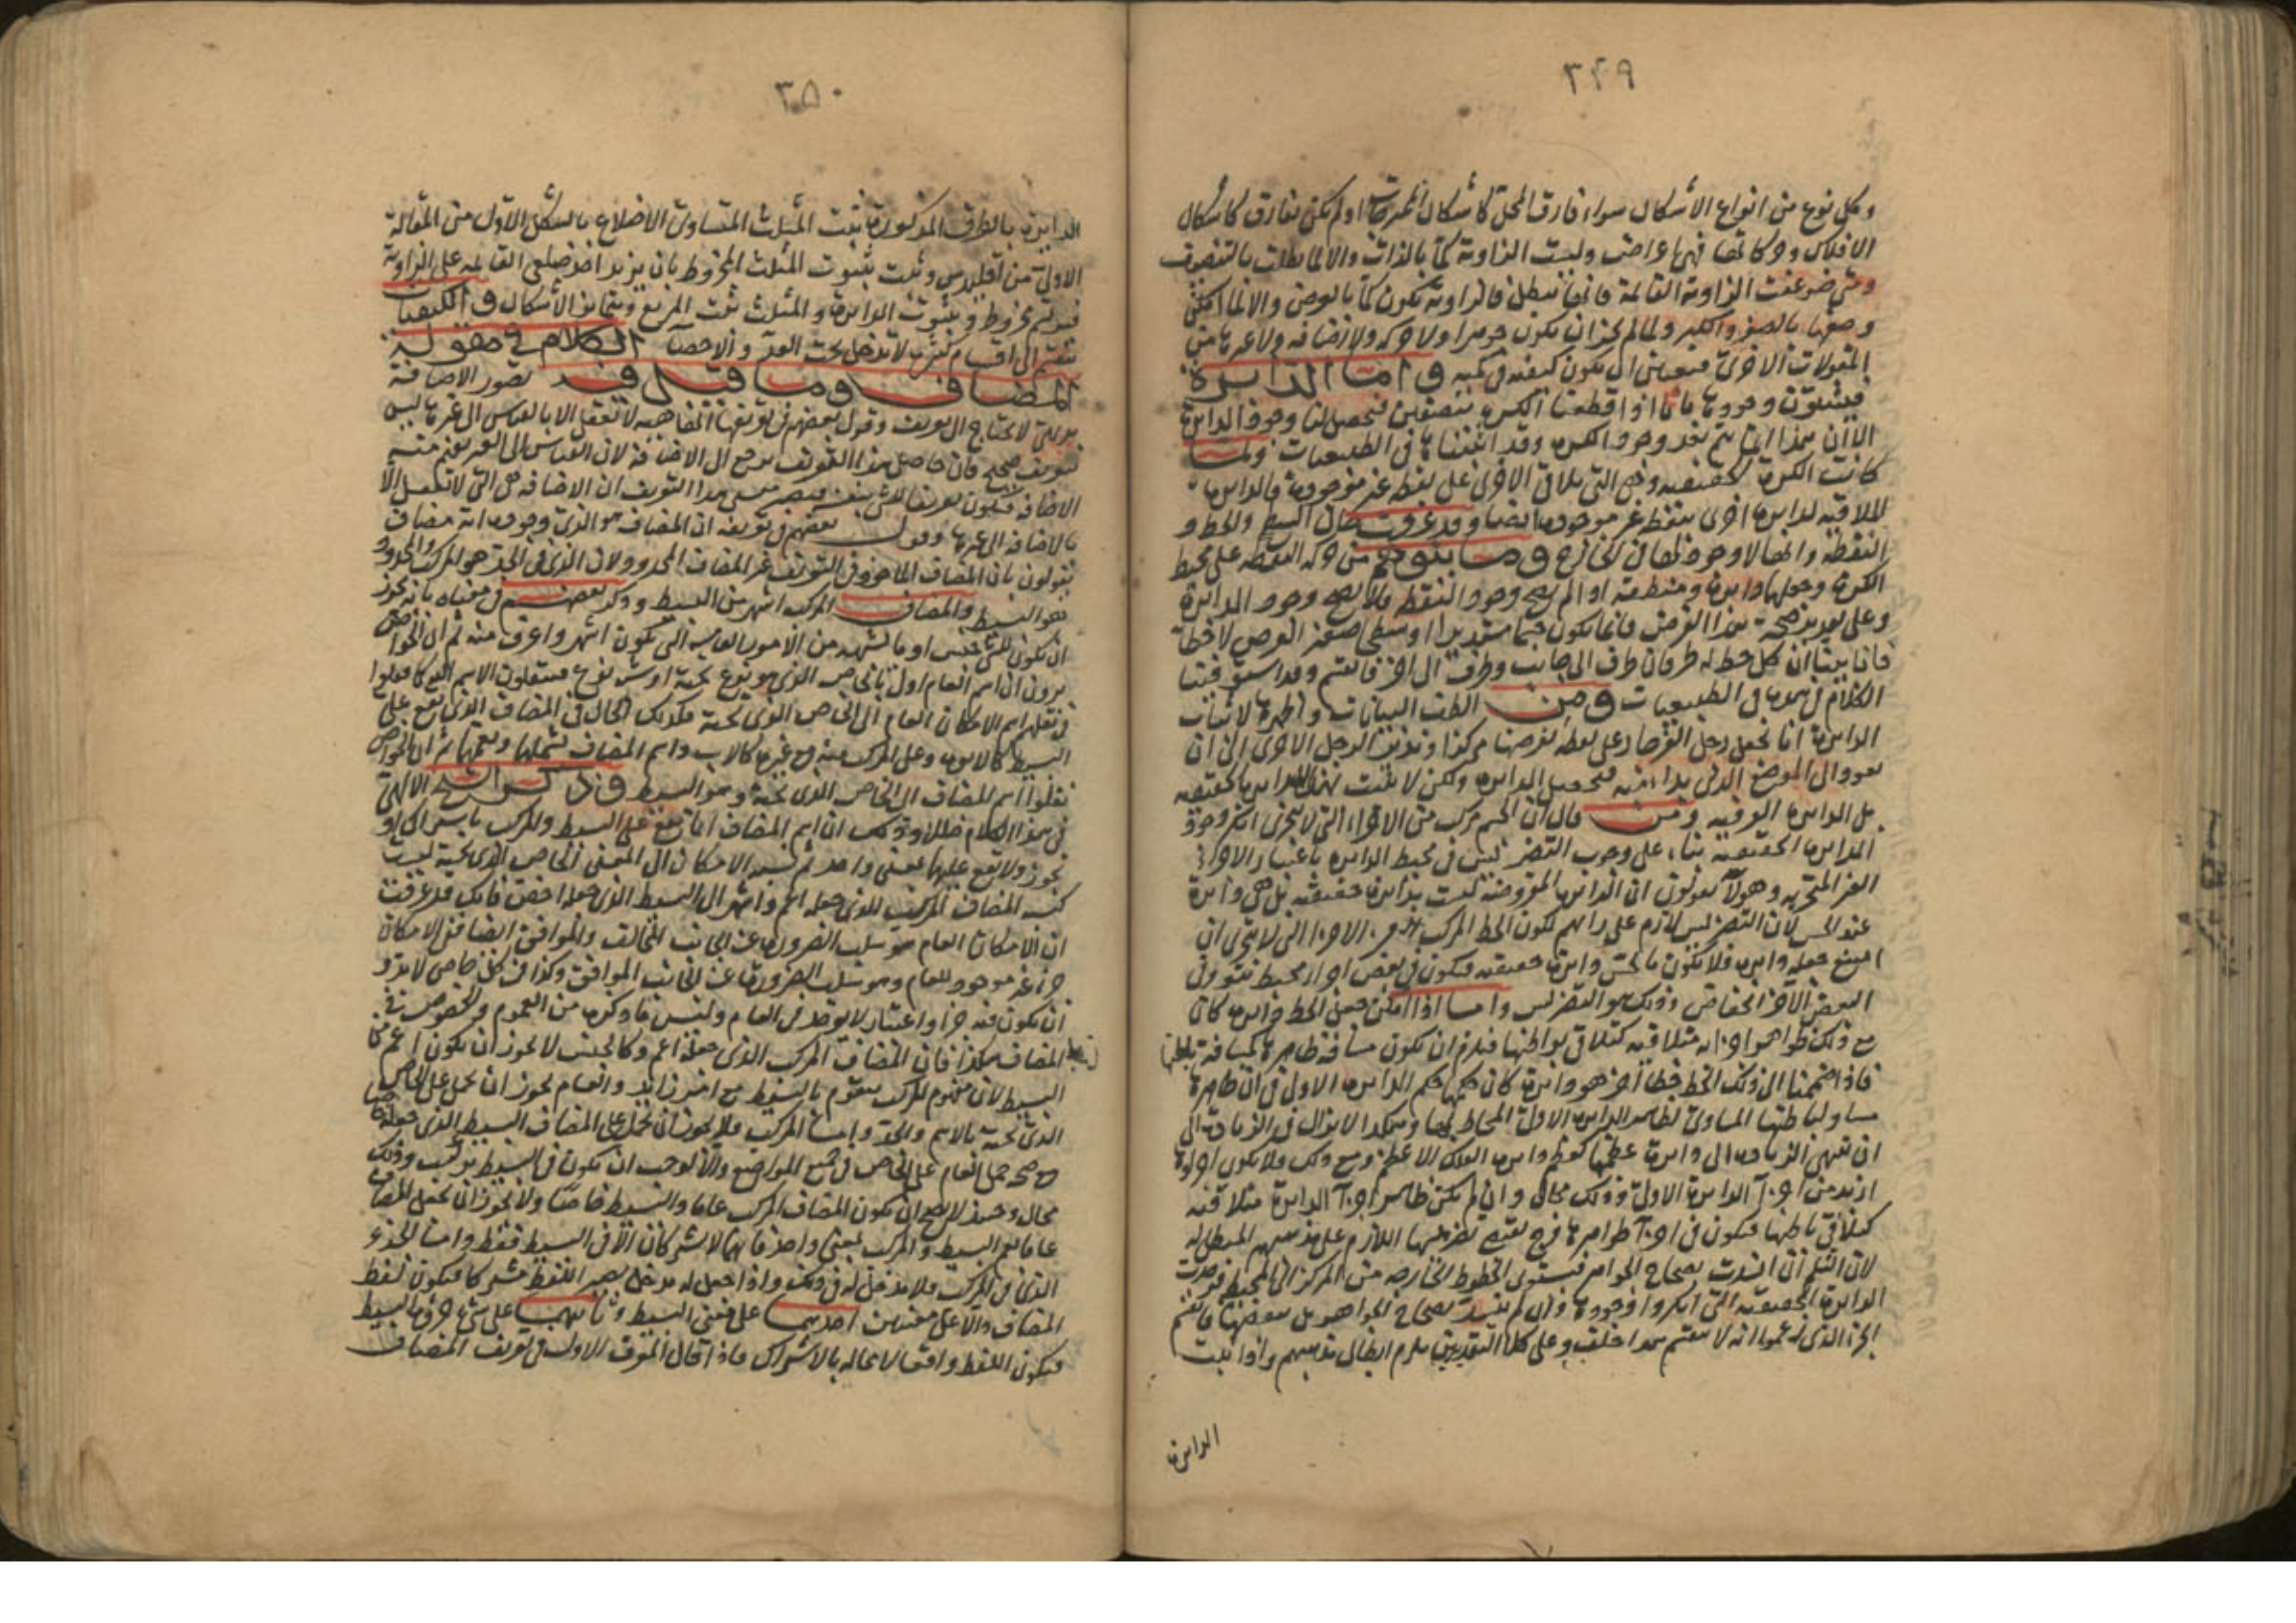 ٣٤٩
وكل نوع من انواع الأشكال سواء فارق المحل كأشكال او لم يكن يفارق كاشكال
الافلاك فهى اعراض وليست الزاوية كماً بالذات والا لما بطلت بالتضعيف
ومتى ضوعفت الزاوية القائمة فانها تبطل فالزاوية تكون كماً بالعرض والا لما امكن
وصفها بالصغر والكبر ولما لم يجز ان يكون جوهرا ولا حركه ولا اضافه ولا غيرها من
المقولات الاخرى فتعين ان يكون كيفيه فى كميه واما الدائرة
فيثبتون وجودها بانا اذا قطعنا الكره بنصفين فيحصل لنا وجود الدايرة
الا ان هذا انما يتم بعد وجود الكره وقد اثبتناها فى الطبيعيات ولما
كانت الكرة الحقيقيه هى التى تلاقى الاخرى على نقطه غير موجودة فالدايره
الملاقيه لدايره اخرى بنقطه غير موجوده ايضا وقد عرفت حال السطح والخط و
النقطه وانها لا وجود لها فى الخارج وما يتوهم من حركه النقطه على محيط
الكرة وجعلها دايرة ومنطقه اذا لم يصح وجود النقطه فلا يصح وجود الدائرة
وعلى تقدير صحة هذا الفرض فانما يكون جسما مستديرا او سطحا صغير العرض لا خطا
فانا بينا ان كل خط له طرفان طرف الى جانب وطرف الى اخر فانقسم وقد استوفينا
الكلام فى هذا فى الطبيعيات ومن الطف البيانات واظهرها لاثبات
الدايرة انا نجعل رجل الفرجار على نقطه نفرضها مركزا وندير الرجل الاخرى الى ان
يعود الى الموضع الذى بدا منه فيحصل الدايره ولكن لا يثبت بهذا الدايره الحقيقيه
بل الدايره العرفيه ومن قال ان الجسم مركب من الاجزاء التى لا تتجزى انكر وجود
الدايرة الحقيقيه بناء على وجوب التضريس فى محيط الدايره باعتبار الاجزاء
الغير المتجزيه وهولآء يقولون ان الدايره المفروضة ليست بدايره حقيقيه بل هى دايرة
عند الحس لان التضريس لازم على رايهم لكون الخط المركب من الاجزا التى لا تتجزى ان
امتنع جعله دايره فلا يكون بالحس دايرة حقيقيه فيكون فى بعض اجزاء محيطه نتوء وفى
البعض الآخر انخفاض وذلك هو التضريس واما اذا امكن جعل الخط دايره كان
مع ذلك ظواهر اجزايه متلاقيه كتلاقى بواطنها فيلزم ان يكون مسافه ظاهرها كمسافة باطنها
فاذا ضممنا الى ذلك الخط خطا آخر هو دايرة كان حكمها حكم الدايره الاولى فى ان ظاهرها
مساو لباطنها المساوى لظاهر الدايره الاولى المحاط بها وهكذا لا تزال فى الزيادة الى
ان تنتهى الزياده الى دايرة عظمها كعظم دايره الفلك الاعظم ومع ذلك فلا يكون اجزاؤه
ازيد من اجزآ الدايرة الاولى وذلك محال وان لم يكن ظاهر اجزآ الدايرة متلاقيه
كتلاقى باطنها فيكون فى اجزآ ظواهرها فرج فيقع تضريسها اللازم على مذهبهم المبطل له
لان الثلم ان انسدت بصحاح الجواهر فيستوى الخطوط الخارجه من المركز الى المحيط فوجدت
الدايرة الحقيقيه التى انكروا وجودها وان لم تنسد بصحاح الجواهر بل ببعضها فانقسم
الجزء الذى زعموا انه لا ينقسم هذا خلف وعلى كلا التقديرين يلزم ابطال مذهبهم واذا ثبت
الدايرة
٣٥٠
الدايرة بالطرق المذكورة ثبت المثلث المتساوى الاضلاع بالشكل الاول من المقالة
الاولى من اقليدس وثبت بثبوت المثلث المخروط بان يزيد احد ضلعى القائمه على الزاوية
فيرتسم مخروط وبثبوت الدايرة والمثلث ثبت المربع وبتمايز الأشكال فى الكيفيات
تنقسم الى اقسام كثيره لا تدخل تحت العد والاحصآء الكلام فى مقولة
المضاف وما قيل فيه تصور الاضافة
بديهى لا يحتاج الى تعريف وقول بعضهم فى تعريفها انها ماهيه لا تعقل الا بالقياس الى غيرها ليس
بتعريف صحيح فان حاصل هذا التعريف يرجع الى الاضافة لان القياس الى الغير يفهم منه
الاضافه فيكون تعريفا للشى بنفسه فيصير معنى هذا التعريف ان الاضافه هى التى لا تعقل الا
بالاضافه الى غيرها وقول بعضهم فى تعريفه ان المضاف هو الذى وجوده انه مضاف
يقولون بان المضاف الماخوذ فى التعريف غير المضاف المحدود ولان الذى فى الحد هو المركب والمحدود
هو البسيط والمضاف المركب اشهر من البسيط وذكر بعضهم فى معناه بانه يجوز
ان يكون للشى جنس او ما يشبهه من الامور العامه التى تكون اشهر واعرف منه ثم ان الخواص
يرون ان اسم العام اولى بالخاص الذى هو نوع تحته او شبه نوع فينقلون الاسم اليه كما فعلوا
فى نقلهم اسم الامكان العام الى الخاص الذى تحته فكذلك الحال فى المضاف الذى يقع على
البسيط كالابوه وعلى المركب منه مع غيره كالاب واسم المضاف يشملها ويعمها ثم ان الخواص
نقلوا اسم المضاف الى الخاص الذى تحته وهو البسيط وذكر الشيخ الالهى
فى هذا الكلام خللا وذلك ان اسم المضاف انما يقع على البسيط والمركب باشتراك او
تجوز ولا يقع عليهما بمعنى واحد ثم نسبة الامكان الى المعنى الخاص الذى تحته ليست
كنسبه المضاف المركب الذى جعله اعم واشهر الى البسيط الذى جعله اخص فانك قد عرفت
ان الامكان العام هو سلب الضرورة عن الجانب المخالف والموافق ايضا ففى الامكان
جزء غير موجود للعام وهو سلب الضرورة عن الجانب الموافق وكذا فى كل خاص لابد و
ان يكون فيه جزء واعتبار لا يوجد فى العام وليس ما ذكره من العموم والخصوص فى
المضاف هكذا فان المضاف المركب الذى جعله اعم وكالجنس لا يجوز ان يكون اعم من
البسيط لان مفهوم المركب يتقوم بالبسيط مع امر زايد والعام يجوز ان يحمل على الخاص
الذى تحته بالاسم والحد واما المركب فلا يجوز ان يحمل على المضاف البسيط الذى جعله خاصا
مع صحة حمل العام على الخاص فى جميع المواضع والا لوجب ان يكون فى البسيط تركيب وذلك
محال وحينئذ لا يصح ان يكون المضاف المركب عاما والبسيط خاصا ولا يجوز ان يجعل المضاف
عاما يعم البسيط والمركب بمعنى واحد فانهما لا يشتركان الا فى البسيط فقط واما الجزء
الثانى فى المركب فلا مدخل له فى ذلك واذا جعل له مدخل يصير اللفظ مشتركا فيكون لفظ
المضاف دالا على معنيين احدهما على معنى البسيط وثانيهما على شى جزؤه البسيط
فيكون اللفظ واقعا لا محاله بالاشتراك فاذا قال المعرف الاول فى تعريف المضاف